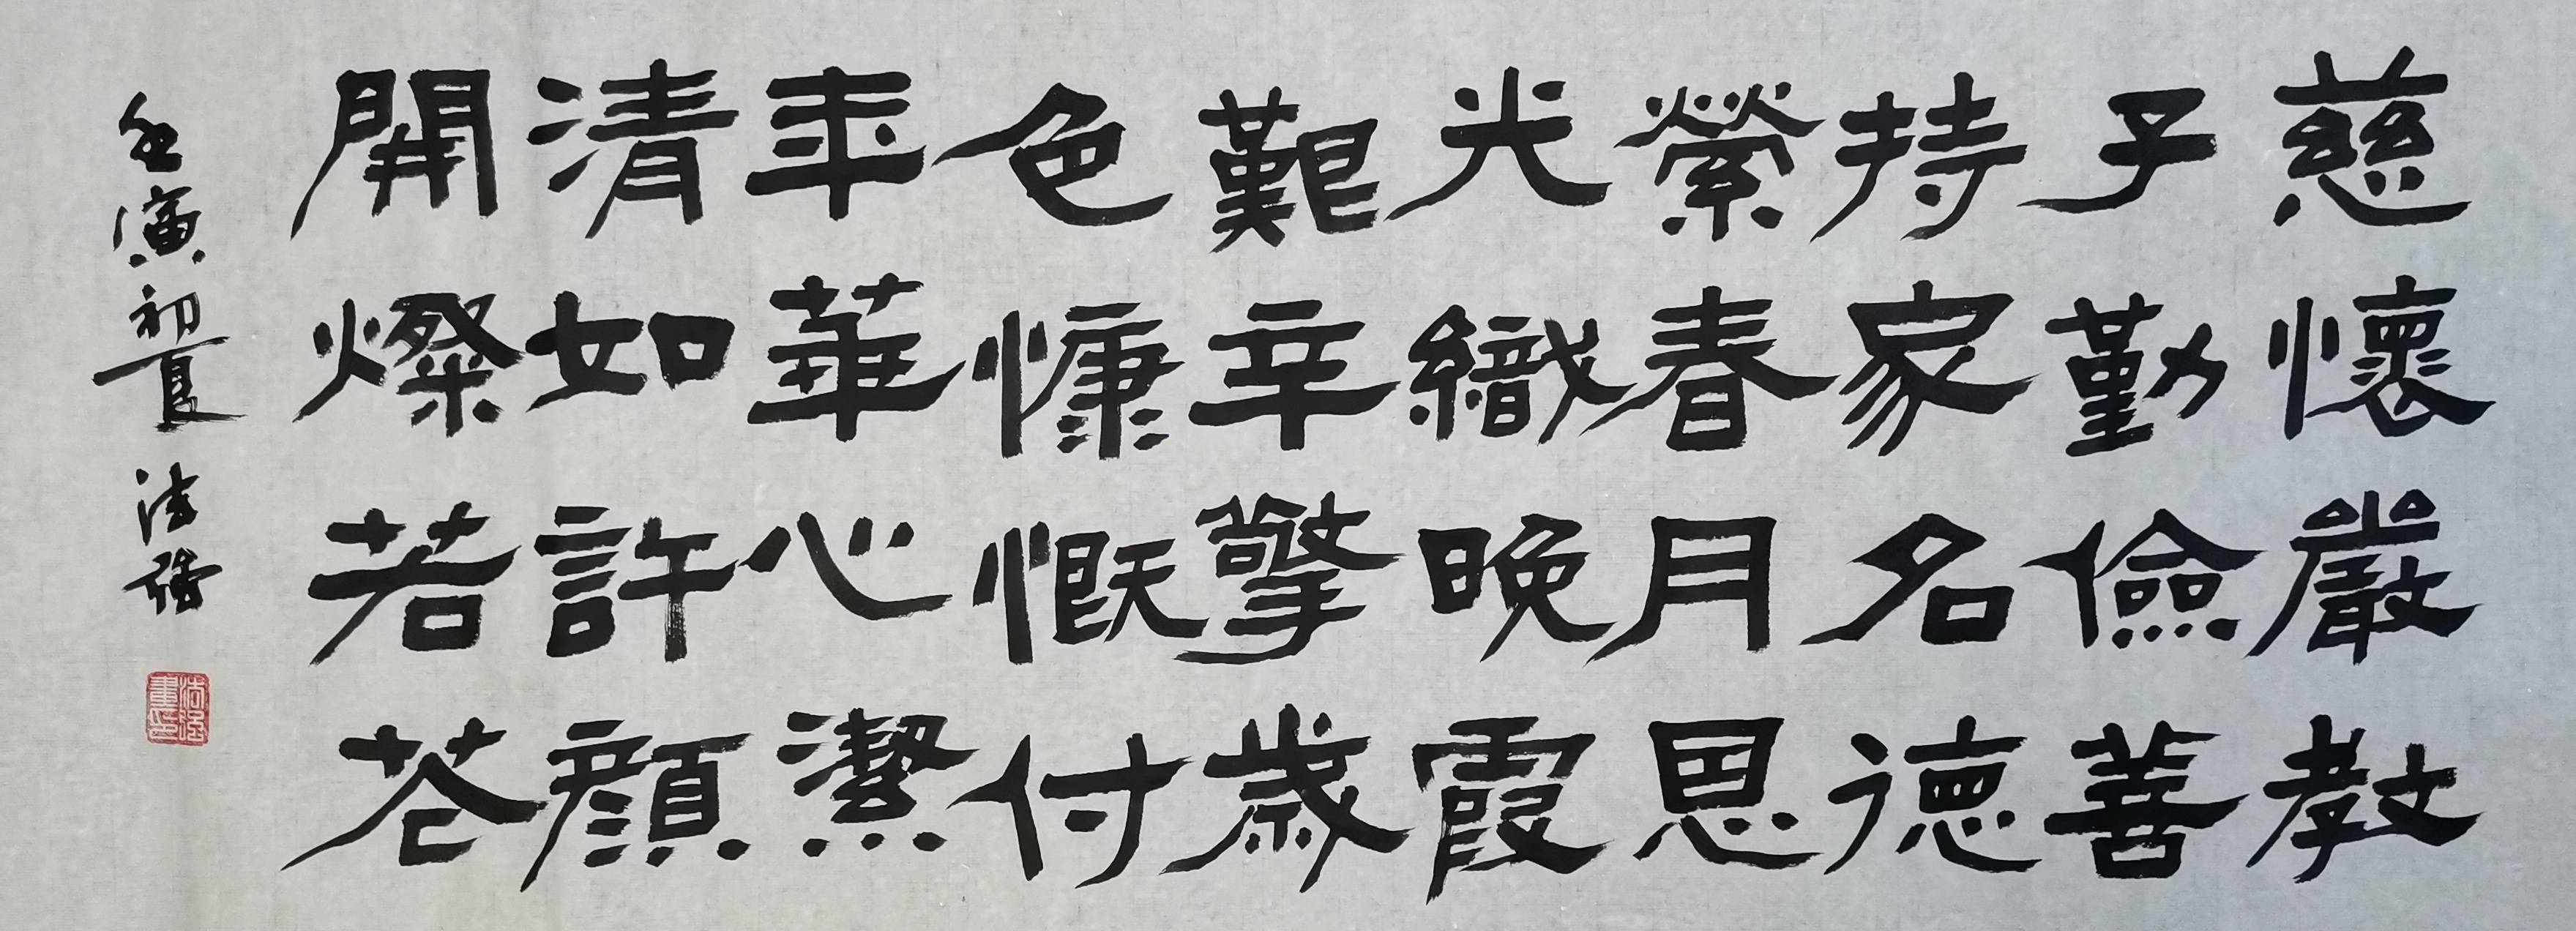 慈懷嚴教
子勤儉善
持家名德
縈春月恩
光織晚霞
艱辛擎歲
色慷慨付
年華心潔
清如許顏
開燦若花
壬寅初夏 法強